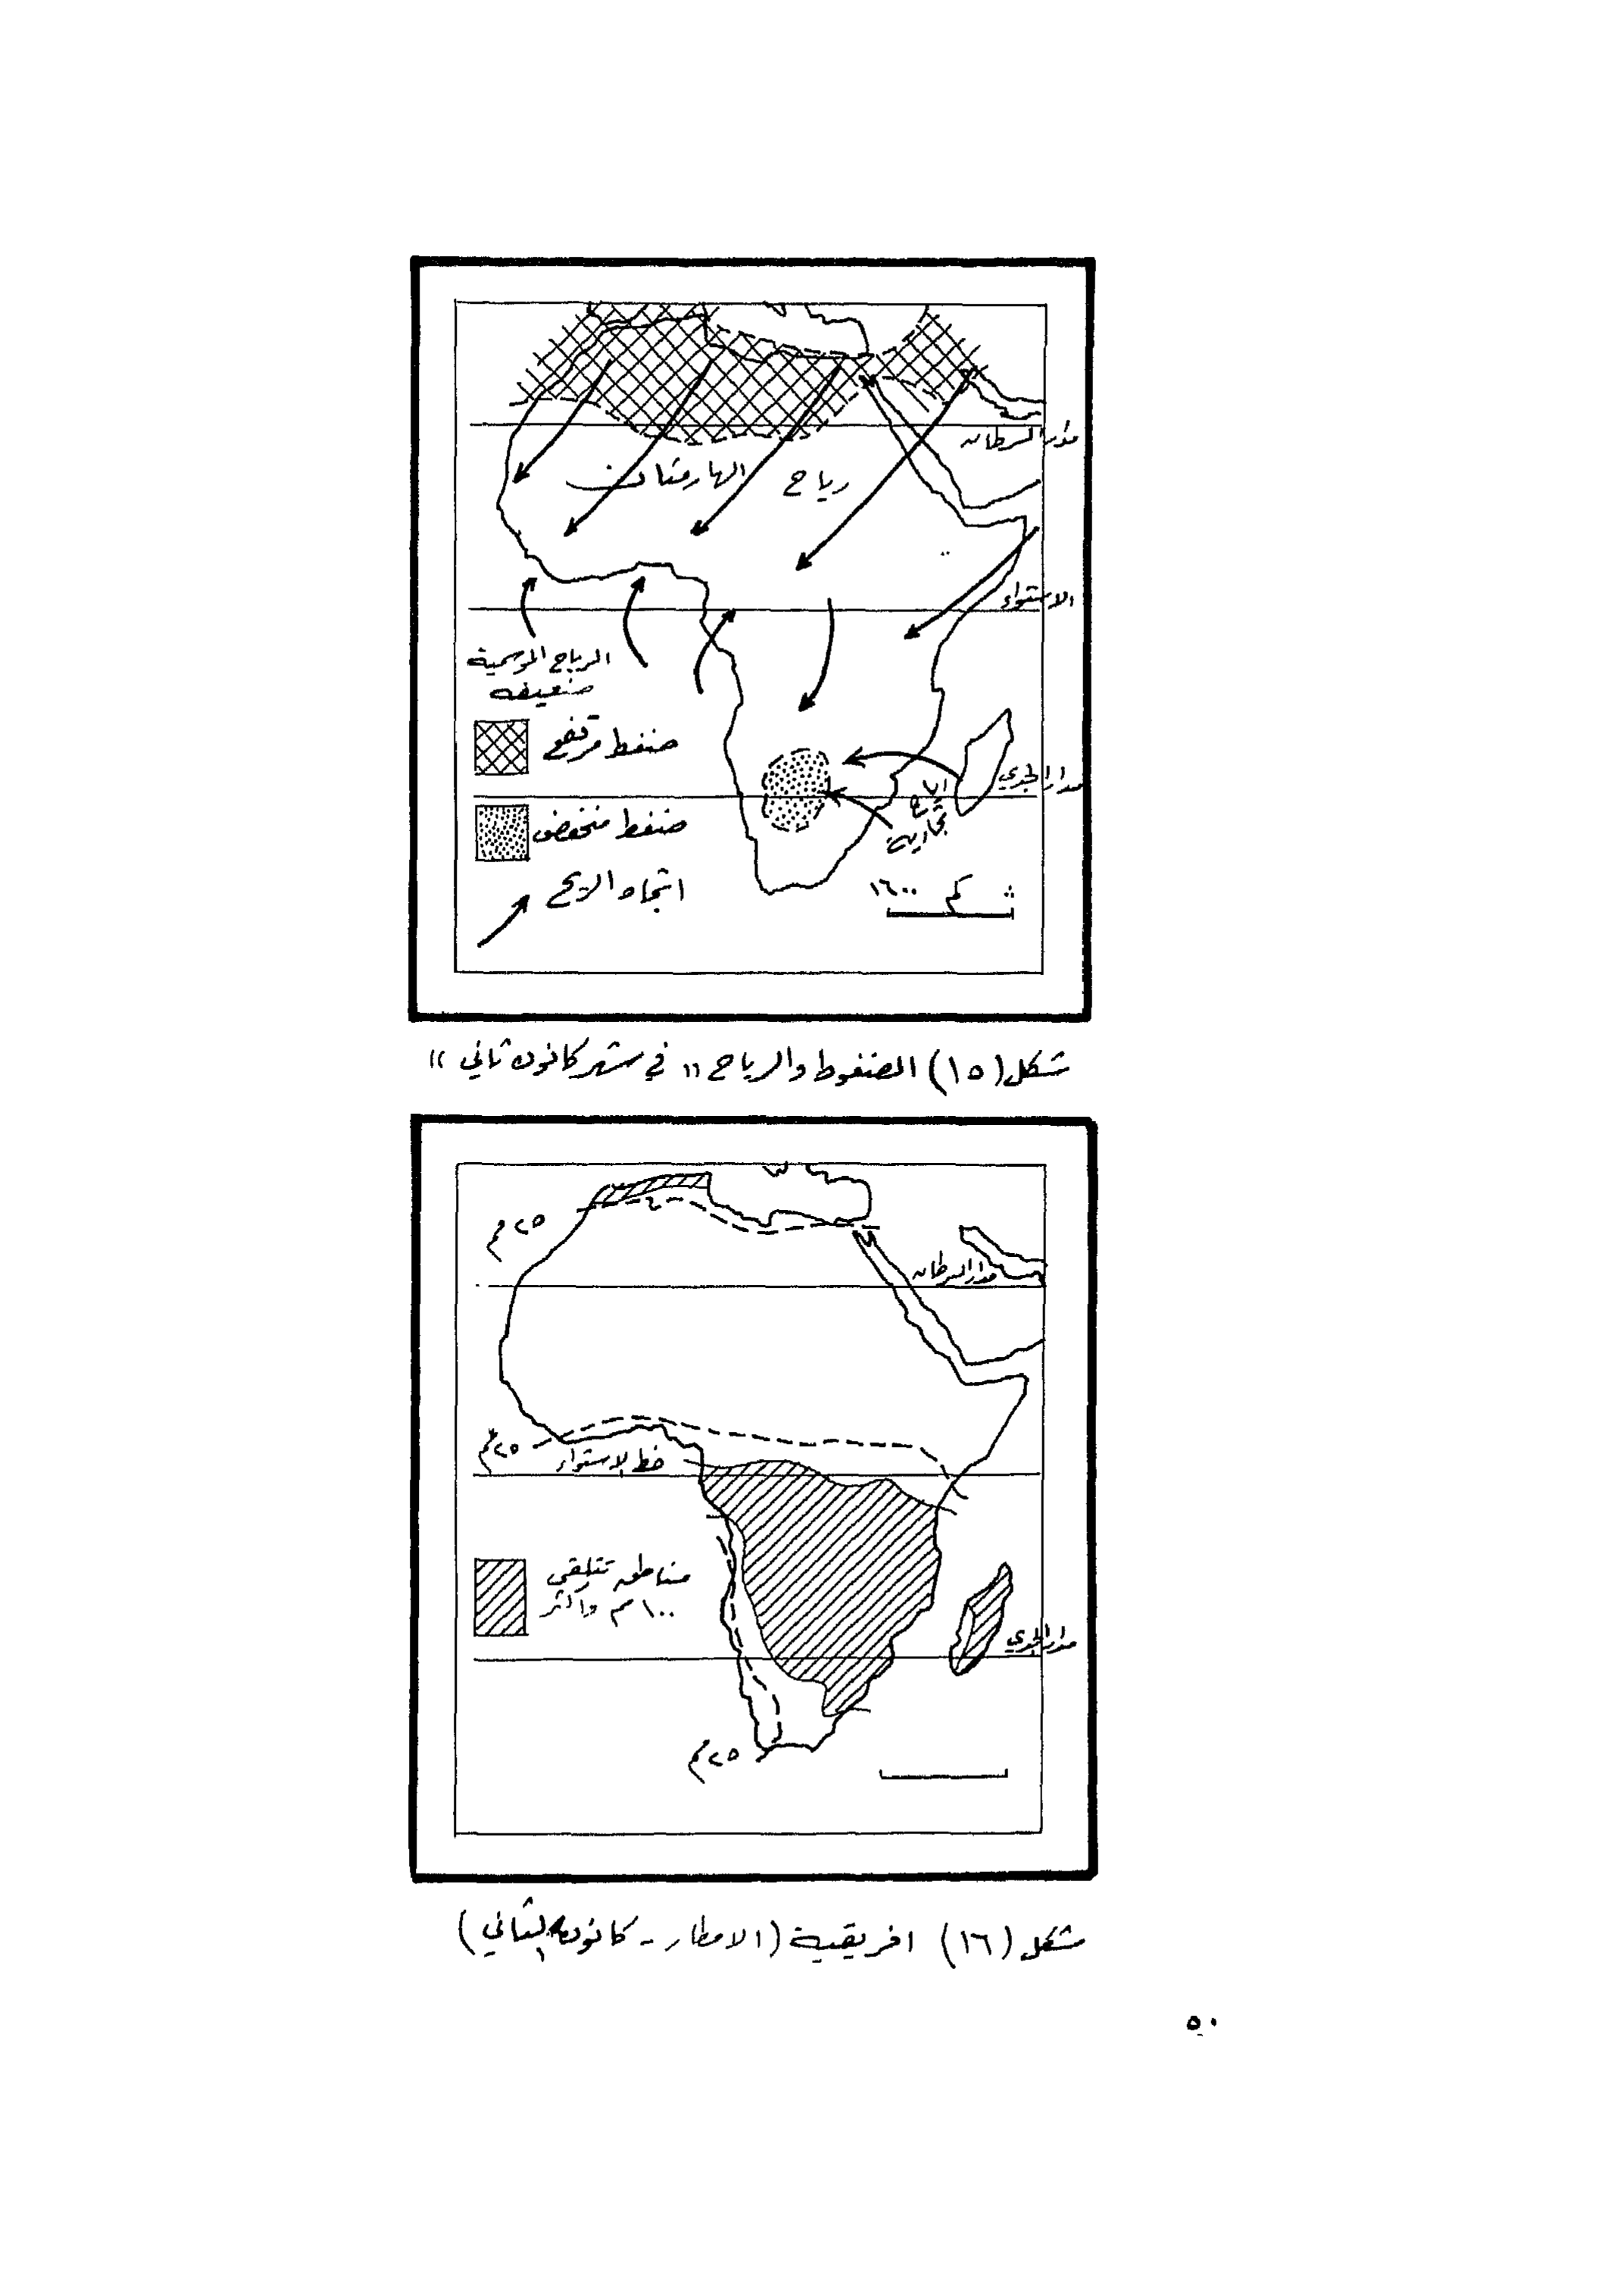 مدار السرطان
رياح الهارمتان
الاستواء
الرياح الموسمية
ضعيفه
ضغط مرتفع
مدار الجدي
رياح
تجارية
ضغط منخفض
اتجاه الريح
١٦٠٠ كم
شكل (١٥) الضغوط والرياح " في شهر كانون ثاني "
٢٥ مم
مدار السرطان
٢٥ مم
خط الاستواء
مناطق تتلقى
١٠٠ مم واكثر
مدار الجدي
٢٥ مم
شكل (١٦) افريقية (الامطار - كانون الثاني)
٥٠